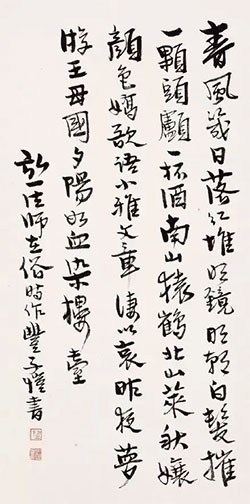 春風幾日落紅堆明鏡明朝白髮摧
一顆頭顱一杯酒南山猿鶴北山萊秋孃
顏色嬌欲語小雅文章悽以哀昨夜夢
游王母國夕陽如血染樓臺
弘一法師在俗時作豐子愷書